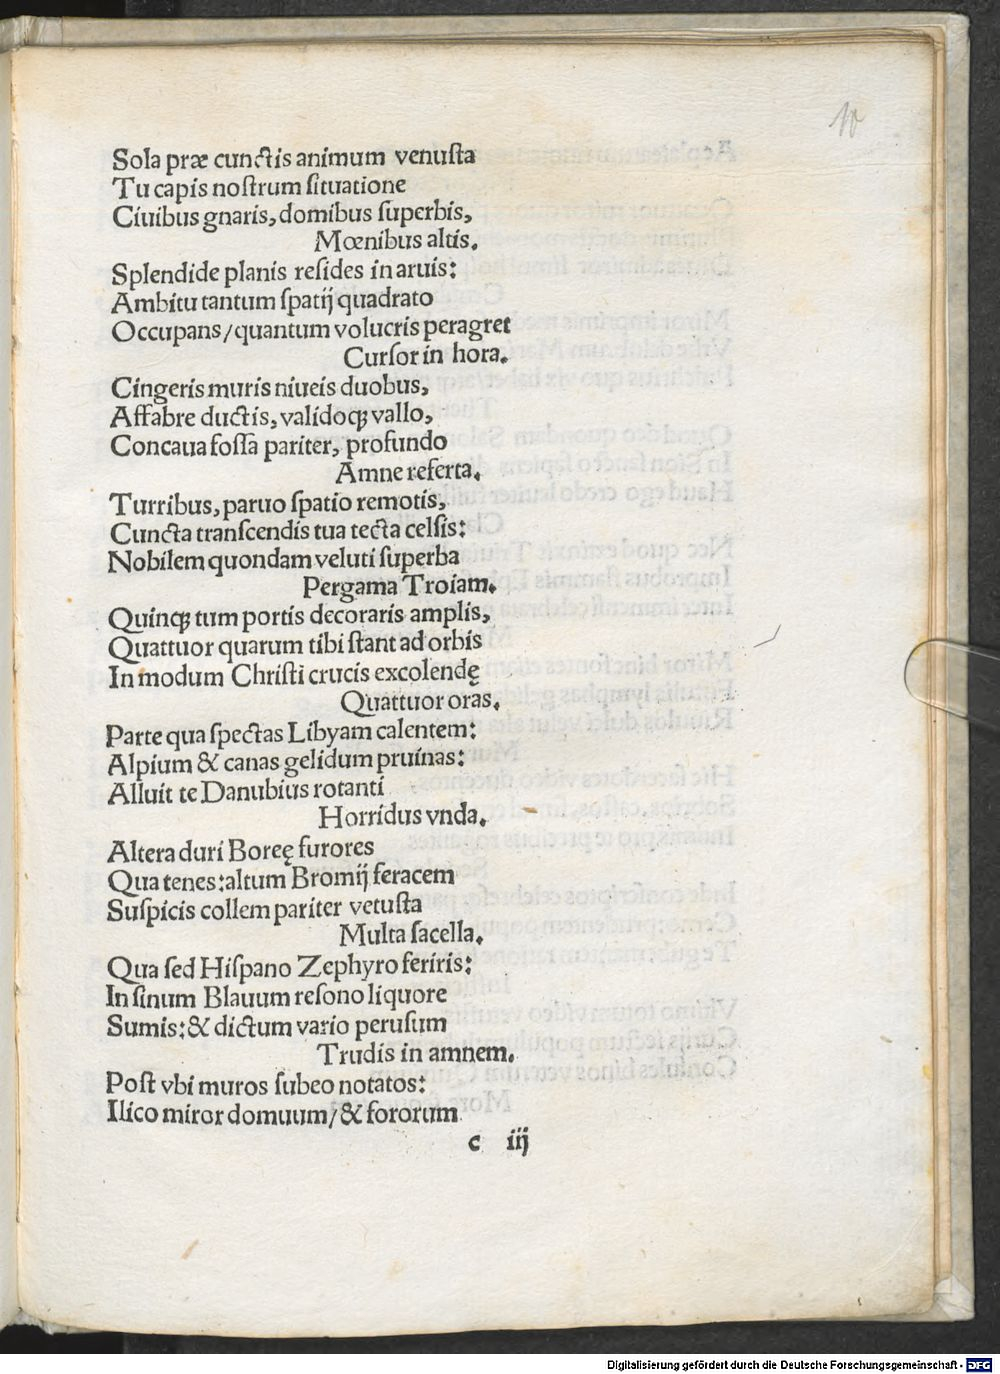 10
Sola præ cunctis animum venuſta
Tu capis noſtrum ſituatione
Ciuibus gnaris, domibus ſuperbis,
Mœnibus altis.
Splendide planis reſides in aruis:
Ambitu tantum ſpatij quadrato
Occupans/quantum volucris peragret
Curſor in hora.
Cingeris muris niueis duobus,
Affabre ductis, validoqꝫ vallo,
Concaua foſſa pariter, profundo
Amne referta.
Turribus, paruo ſpatio remotis,
Cuncta tranſcendis tua tecta celſis:
Nobilem quondam veluti ſuperba
Pergama Troiam.
Quinqꝫ tum portis decoraris amplis,
Quattuor quarum tibi ſtant ad orbis
In modum Chriſti crucis excolendę
Quattuor oras.
Parte qua ſpectas Libyam calentem:
Alpium & canas gelidum pruinas:
Alluit te Danubius rotanti
Horridus vnda.
Altera duri Boreę furores
Qua tenes:altum Bromij feracem
Suſpicis collem pariter vetuſta
Multa ſacella.
Qua ſed Hiſpano Zephyro feriris:
In ſinum Blauum reſono liquore
Sumis:& dictum vario peruſum
Trudis in amnem.
Poſt vbi muros ſubeo notatos:
Ilico miror domuum/& fororum
c iij
Digitalisierung gefördert durch die Deutsche Forschungsgemeinschaft - DFG